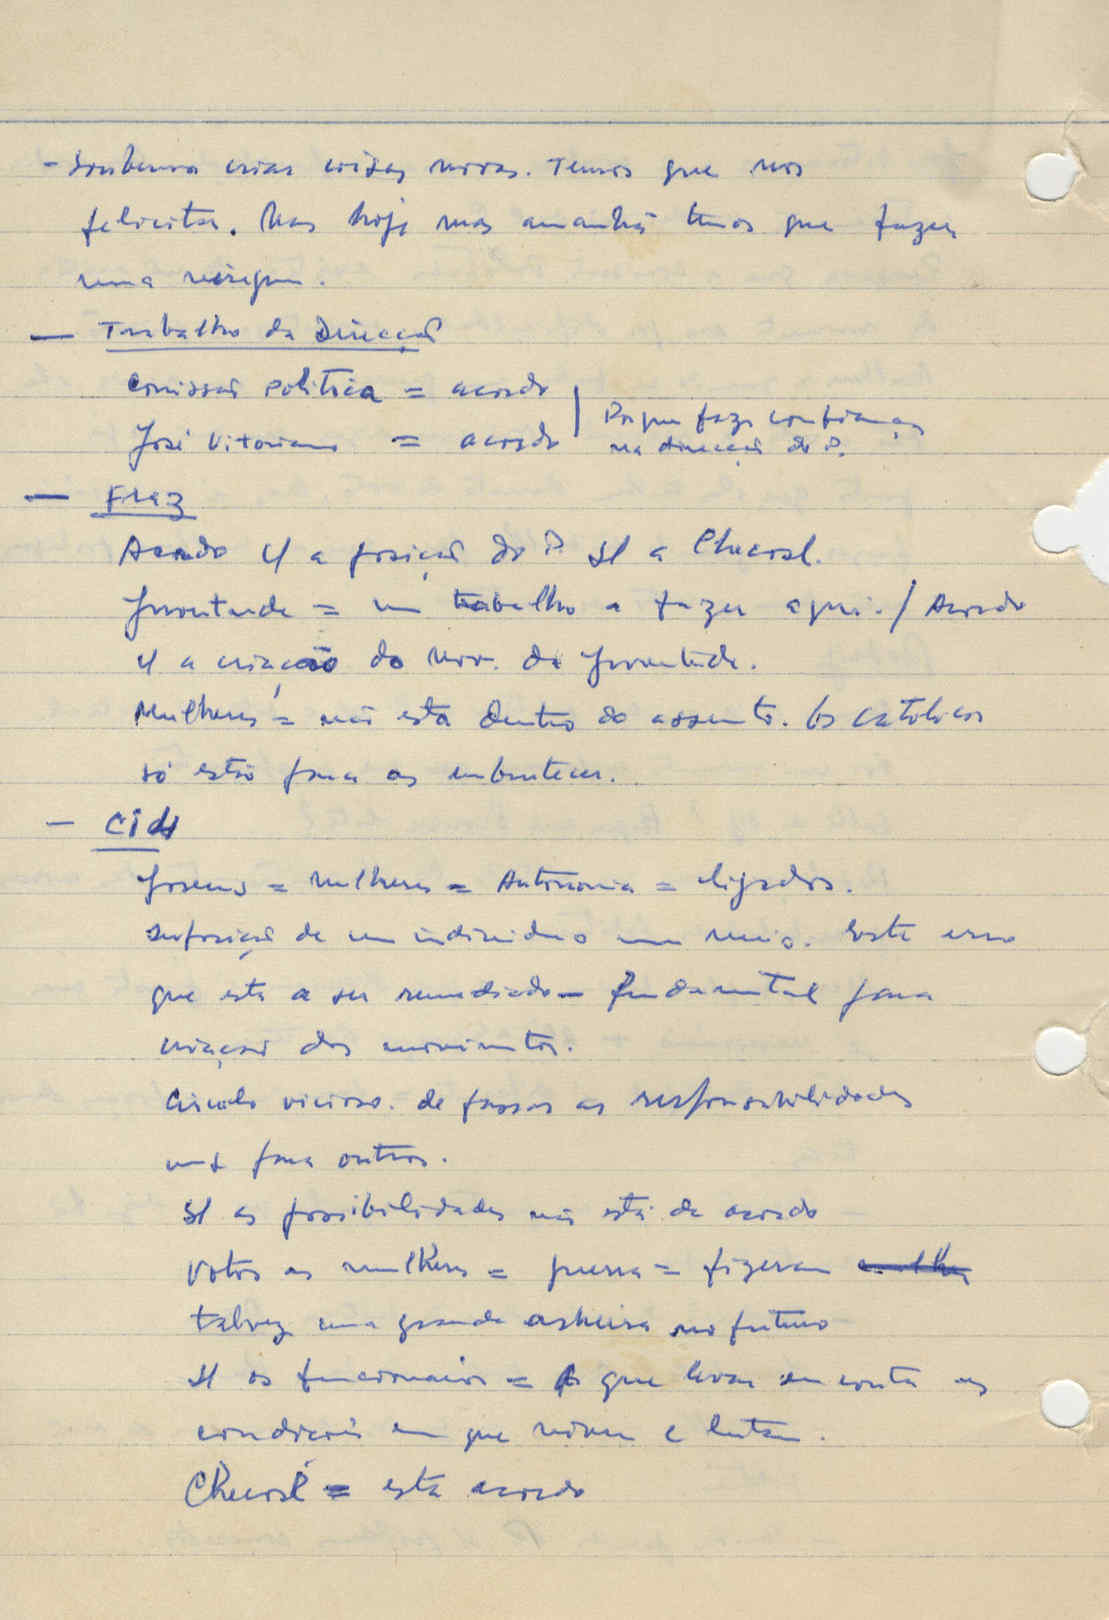 - Soubemos criar coisas novas. Temos que nos
felicitar. Mas hoje mas amanhã temos que fazer
uma
— Trabalho da Direcção
Comissão Politica = acordo
José Vitoriano = acordo | Porque faze confiança
na direcção do P.
— Fraz
Acordo c/ a posição do P. s/ a Checosl.
Juventude = um trabalho a fazer aqui. / Acordo
c/ a criação do mov. da juventude.
Mulheres = não está dentro do assunto. Os católicos
só estão para as embrutecer.
- Cids
Jovens = mulheres = Autonomia = ligados.
Suposição de um individuo num meio. Este erro
que está a ser remediado - fundamental para
criação dos movimentos.
Circulo vicioso. de passar as responsabilidades
uns para outros.
s/ as possibilidades não está de acordo
Votos as mulheres = guerra = fizeram
talvez uma grande asneira no futuro
s/ os funcionários = que levar em conta as
condições em que vivem e lutam.
Checosl = está acordo